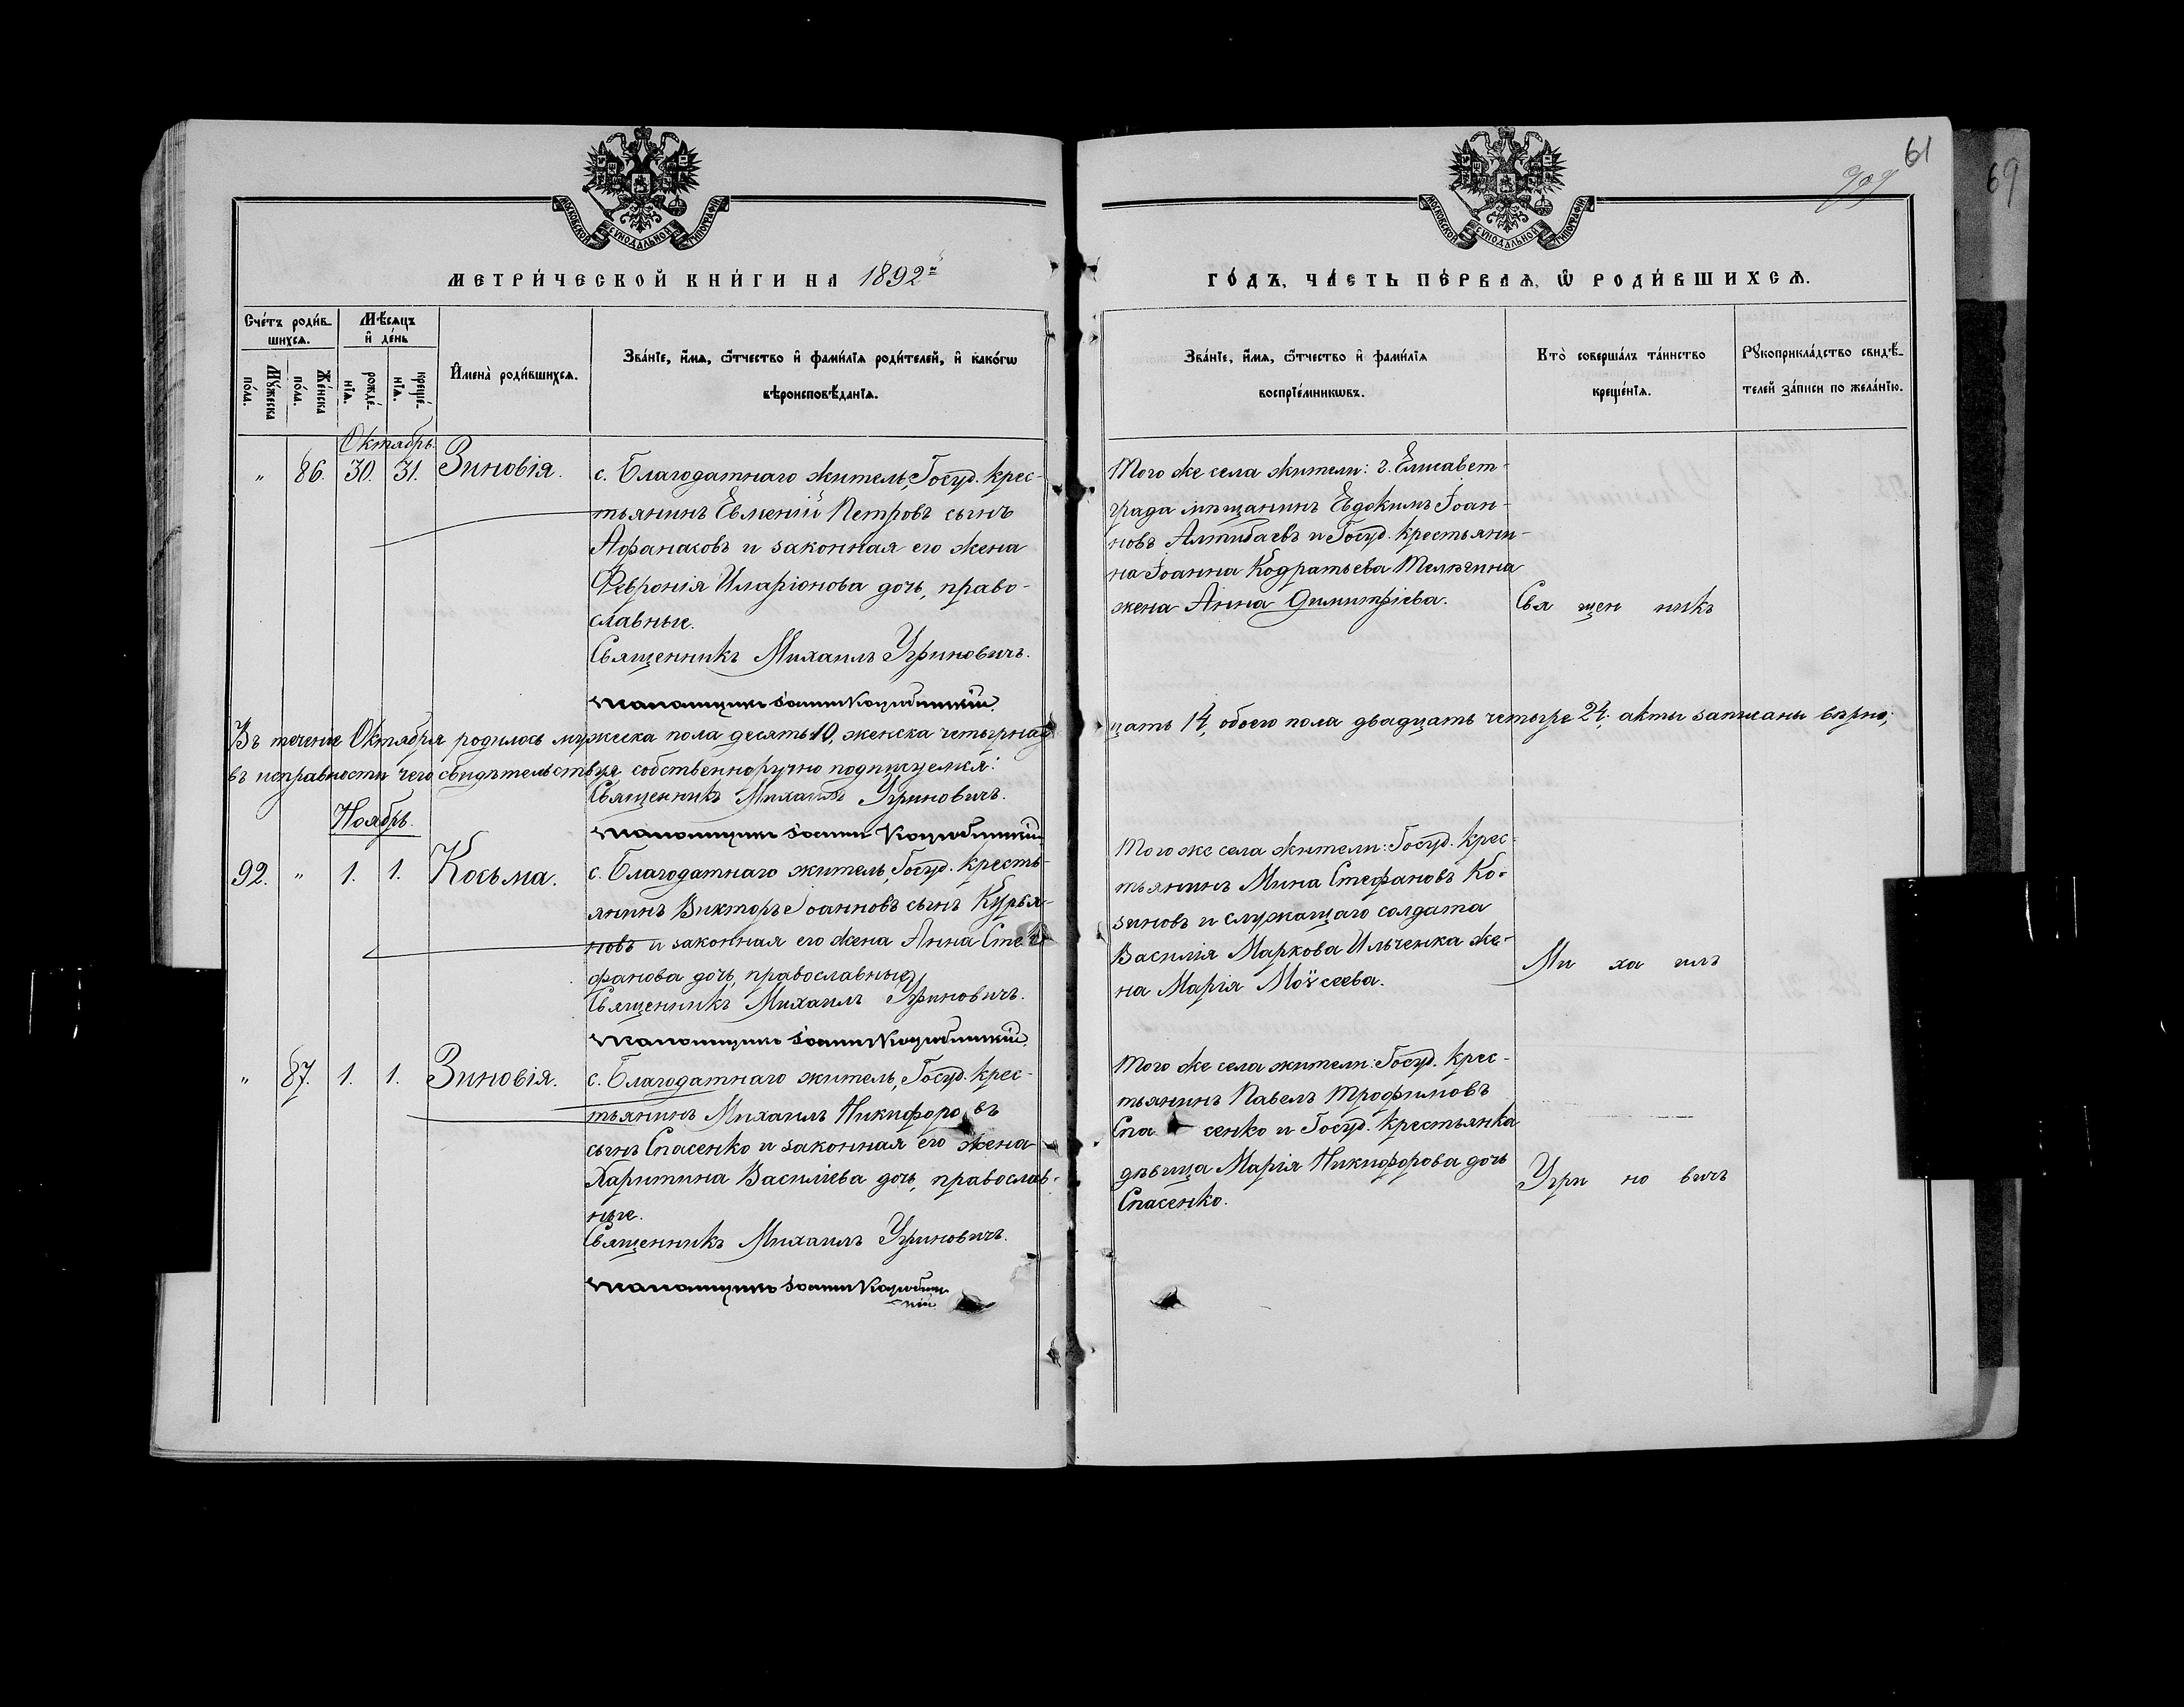 61
909
69
МОСКОВСКОЙ СѴНОДАЛЬНОЙ ТИПОГРАФІИ
МОСКОВСКОЙ СѴНОДАЛЬНОЙ ТИПОГРАФІИ
МЕТРИ́ЧЕСКОЙ КНИ́ГИ НА 1892й
ГО́ДЪ, ЧА́СТЬ ПЕ́РВАѦ, Ѿ РОДИ́ВШИХСѦ.
Сче́тъ роди́в-
шихсѧ.
Мꙋ́жеска по́ла.
Же́нска по́ла.
Мѣ́сѧцъ
и҆ де́нь
рожде́-
нїѧ.
креще́-
нїѧ.
И҆мена̀ роди́вшихсѧ.
Зва́нїе, и҆́мѧ, ѻ҆́тчество и҆ фами́лїѧ роди́телей, и҆ како́гѡ
вѣроисповѣ́данїѧ.
Зва́нїе, и҆́мѧ, ѻ҆́тчество и҆ фами́лїѧ
воспрїе́мникѡвъ.
Кто̀ соверша́лъ та́инство
креще́нїѧ.
Рꙋкоприкла́дство свидѣ́-
телей за́писи по жела́нїю.
Октябрь.
" 86. 30. 31. Зиновія.
с. Благодатнаго житель, Госуд. крес-
тьянинъ Евменій Петровъ сынъ
Афанасовъ и законная его жена
Февронія Иларіонова дочь, право-
славные.
Священникъ Михаилъ Угриновичъ.
Псаломщикъ Іоаннъ
Того же села жители: г. Елисавет-
града мѣщанинъ Евдокимъ Іоан-
новъ Алтибаевъ и Госуд. крестьяни-
на Іоанна Кодратьева Телигина
жена Анна Димитріева.
Свя щен никъ
Въ теченіе Октября родилось мужеска пола десять 10, женска четырнад-
цать 14, обоего пола двадцать четыре 24; акты записаны вѣрно;
въ исправности чего свидѣтельствуя собственноручно подписуемся:
Священникъ Михаилъ Угриновичъ.
Псаломщикъ Іоаннъ
Ноябрь.
92. " 1. 1. Косьма.
с. Благодатнаго житель, Госуд. кресть-
янинъ Викторъ Іоанновъ сынъ Курья-
новъ и законная его жена Анна Сте-
фанова дочь, православные
Священникъ Михаилъ Угриновичъ.
Псаломщикъ Іоаннъ
Того же села жители: Госуд. крес-
тьянинъ Мина Стефановъ Ко-
зиновъ и служащаго солдата
Василія Маркова Ильченка же-
на Марія Моѵсеева.
Ми ха илъ
" 87. 1. 1. Зиновія.
с. Благодатнаго житель, Госуд. крес-
тьянинъ Михаилъ Никифоровъ
сынъ Спасенко и законная его жена
Харитина Василіева дочь, православ-
ные.
Священникъ Михаилъ Угриновичъ.
Псаломщикъ Іоаннъ
Того же села жители: Госуд. крес-
тьянинъ Павелъ Трофимовъ
Спасенко и Госуд. крестьянка
дѣвица Марія Никифорова дочь
Спасенко.
Угри но вичъ